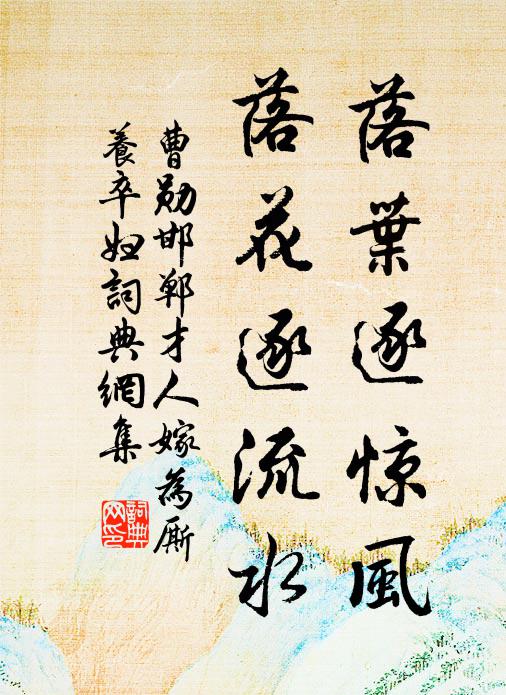 落葉逐惊風
落花逐流水
曹勛邯鄲才人嫁為厮
養卒婦詞典網集
詞典网印